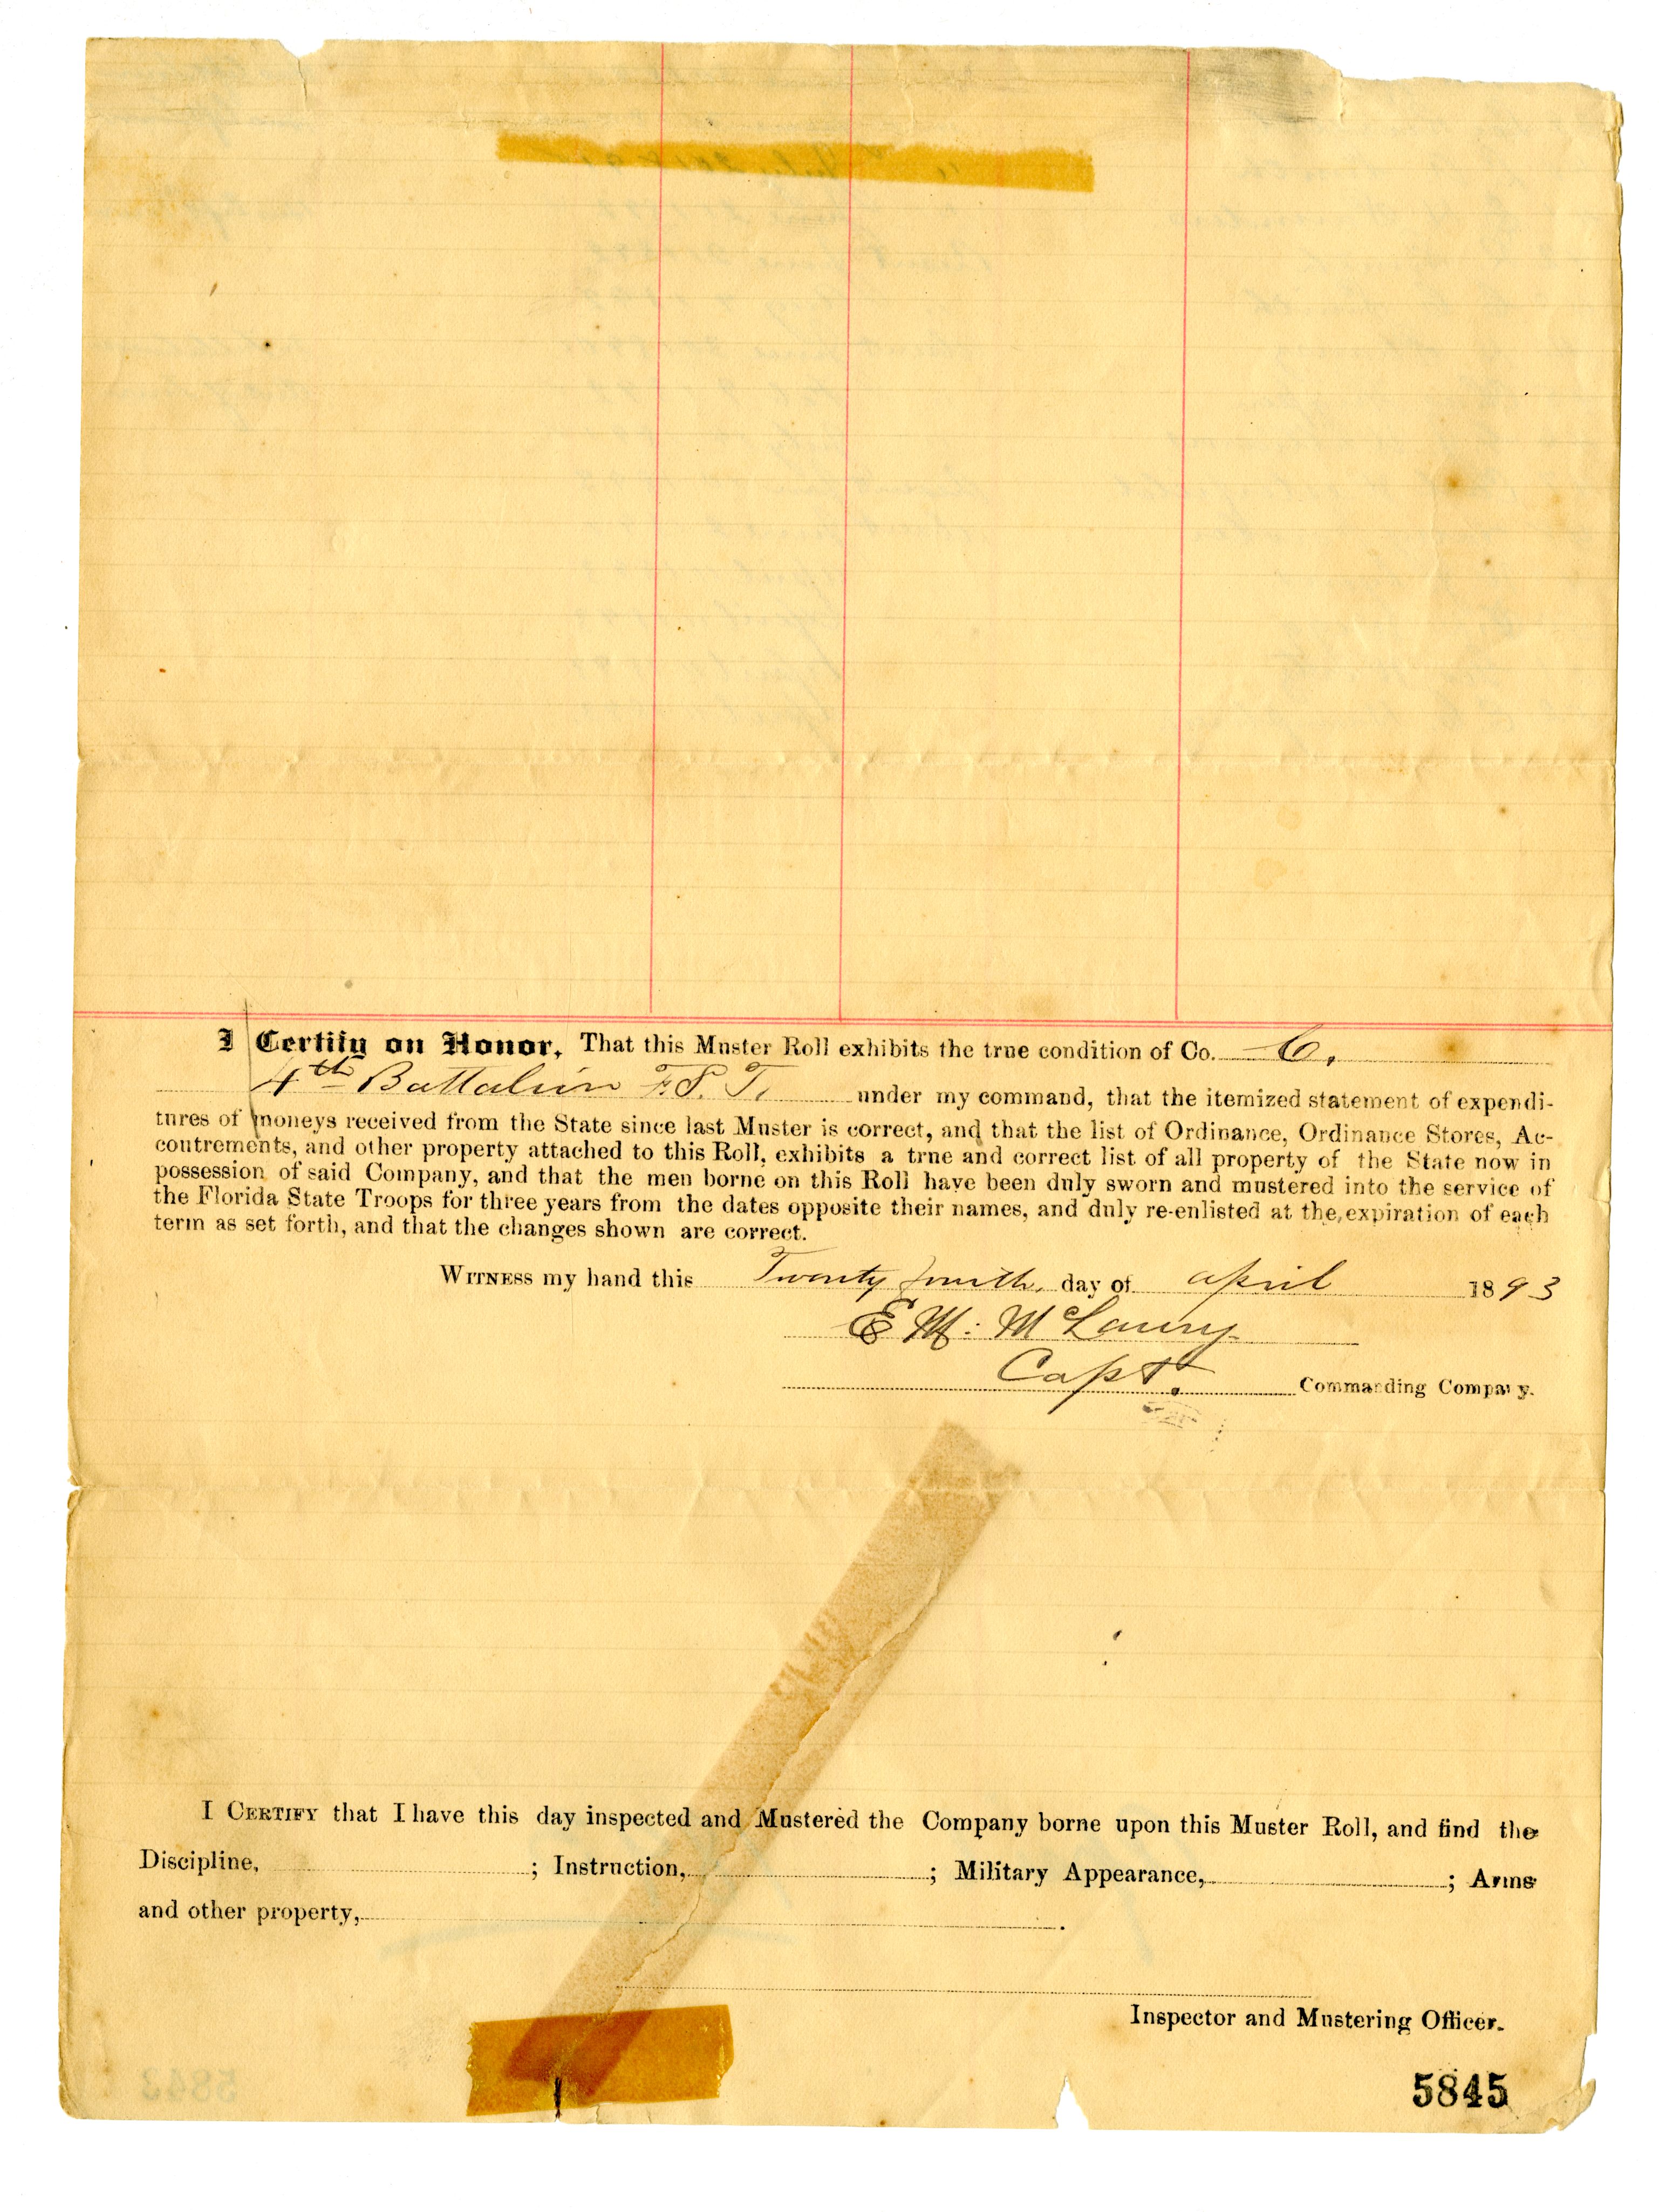 I Certify on Honor, That this Muster Roll exhibits the true condition of Co. C,
4th Battalion F. S. T. under my command, that the itemized statement of expendi-
tures of moneys received from the State since last Muster is correct, and that the list of Ordinance, Ordinance Stores, Ac-
coutrements, and other property attached to this Roll, exhibits a true and correct list of all property of the State now in
possession of said Company, and that the men borne on this Roll have been duly sworn and mustered into the service of
the Florida State Troops for three years from the dates opposite their names, and duly re-enlisted at the expiration of each
term as set forth, and that the changes shown are correct.
WITNESS my hand this Twenty fourth day of april 1893
E M. McLaury
Capt. Commanding Company.
I CERTIFY that I have this day inspected and Mustered the Company borne upon this Muster Roll, and find the
Discipline, ; Instruction, ; Military Appearance, ; Arms
and other property, .
Inspector and Mustering Officer.
5845